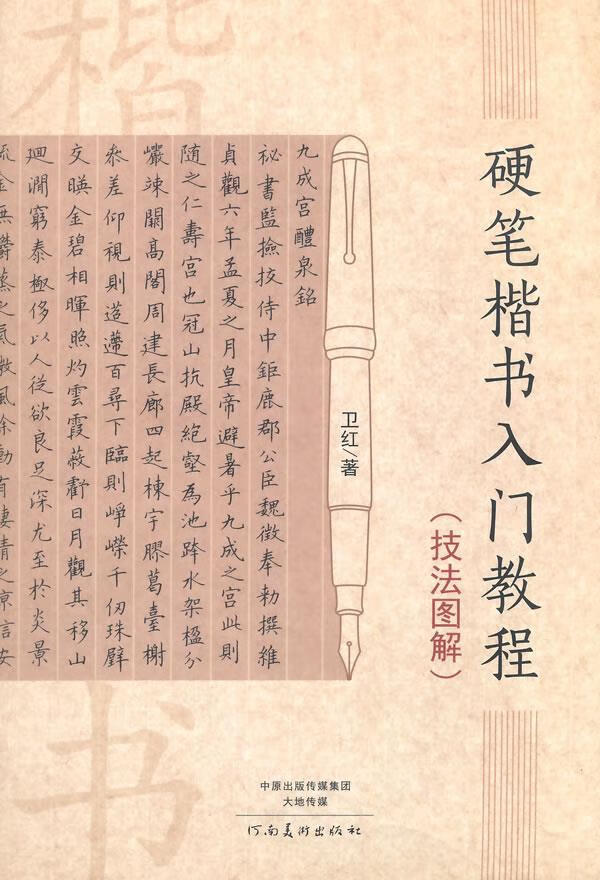 硬笔楷书入门教程
（技法图解）
卫红/著
九成宫醴泉銘
祕書監撿挍侍中鉅鹿郡公臣魏徵奉勑撰維
貞觀六年孟夏之月皇帝避暑乎九成之宫此則
随之仁壽宫也冠山抗殿絶壑為池跨水架楹分
巖竦闕髙閣周建長廊四起棟宇膠葛臺榭
叅差仰視則迢遰百尋下臨則崢嶸千仞珠璧
交暎金碧相暉照灼雲霞蔽虧日月觀其移山
廻澗窮泰極侈以人従欲良足深尤至於炎景
流金無鬱蒸之氣微風徐動有淒清之凉信安
楷
书
中原出版传媒集团
大地传媒
河南美術出版社